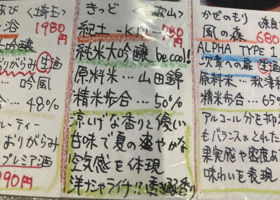 あび〈埼玉〉
浴 1980円
おりがらみ 生酒
… 吟風
合 … 48%
ーティー
おりがらみ
プレミア酒
990円
きっど 〈松山〉
紀土 -KID-
純米大吟醸 be cool!
原料米 … 山田錦
精米歩合 … 50%
涼しげな香りと優しい
甘味で夏の爽やかな
空気感を体現
かぜのもり
風の森 680
ALPHA TYPE 1
次章の扉 生酒
原料米 … 秋津穂
精米歩合 … 65
アルコール分を抑え
もバランスのとれた
果実感や密度感
味わいを表現